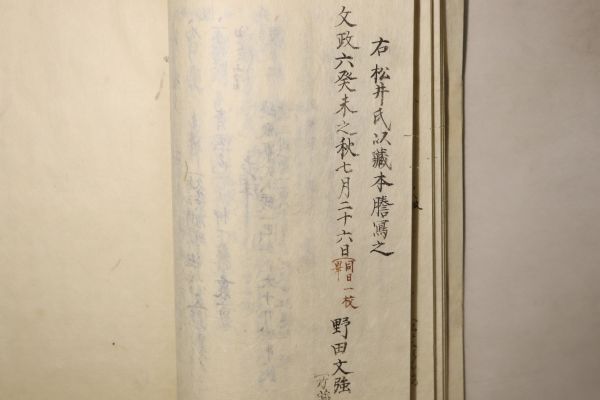 右松井氏以蔵本謄寫之
文政六癸未之秋七月二十六日同日一校畢 野田文強